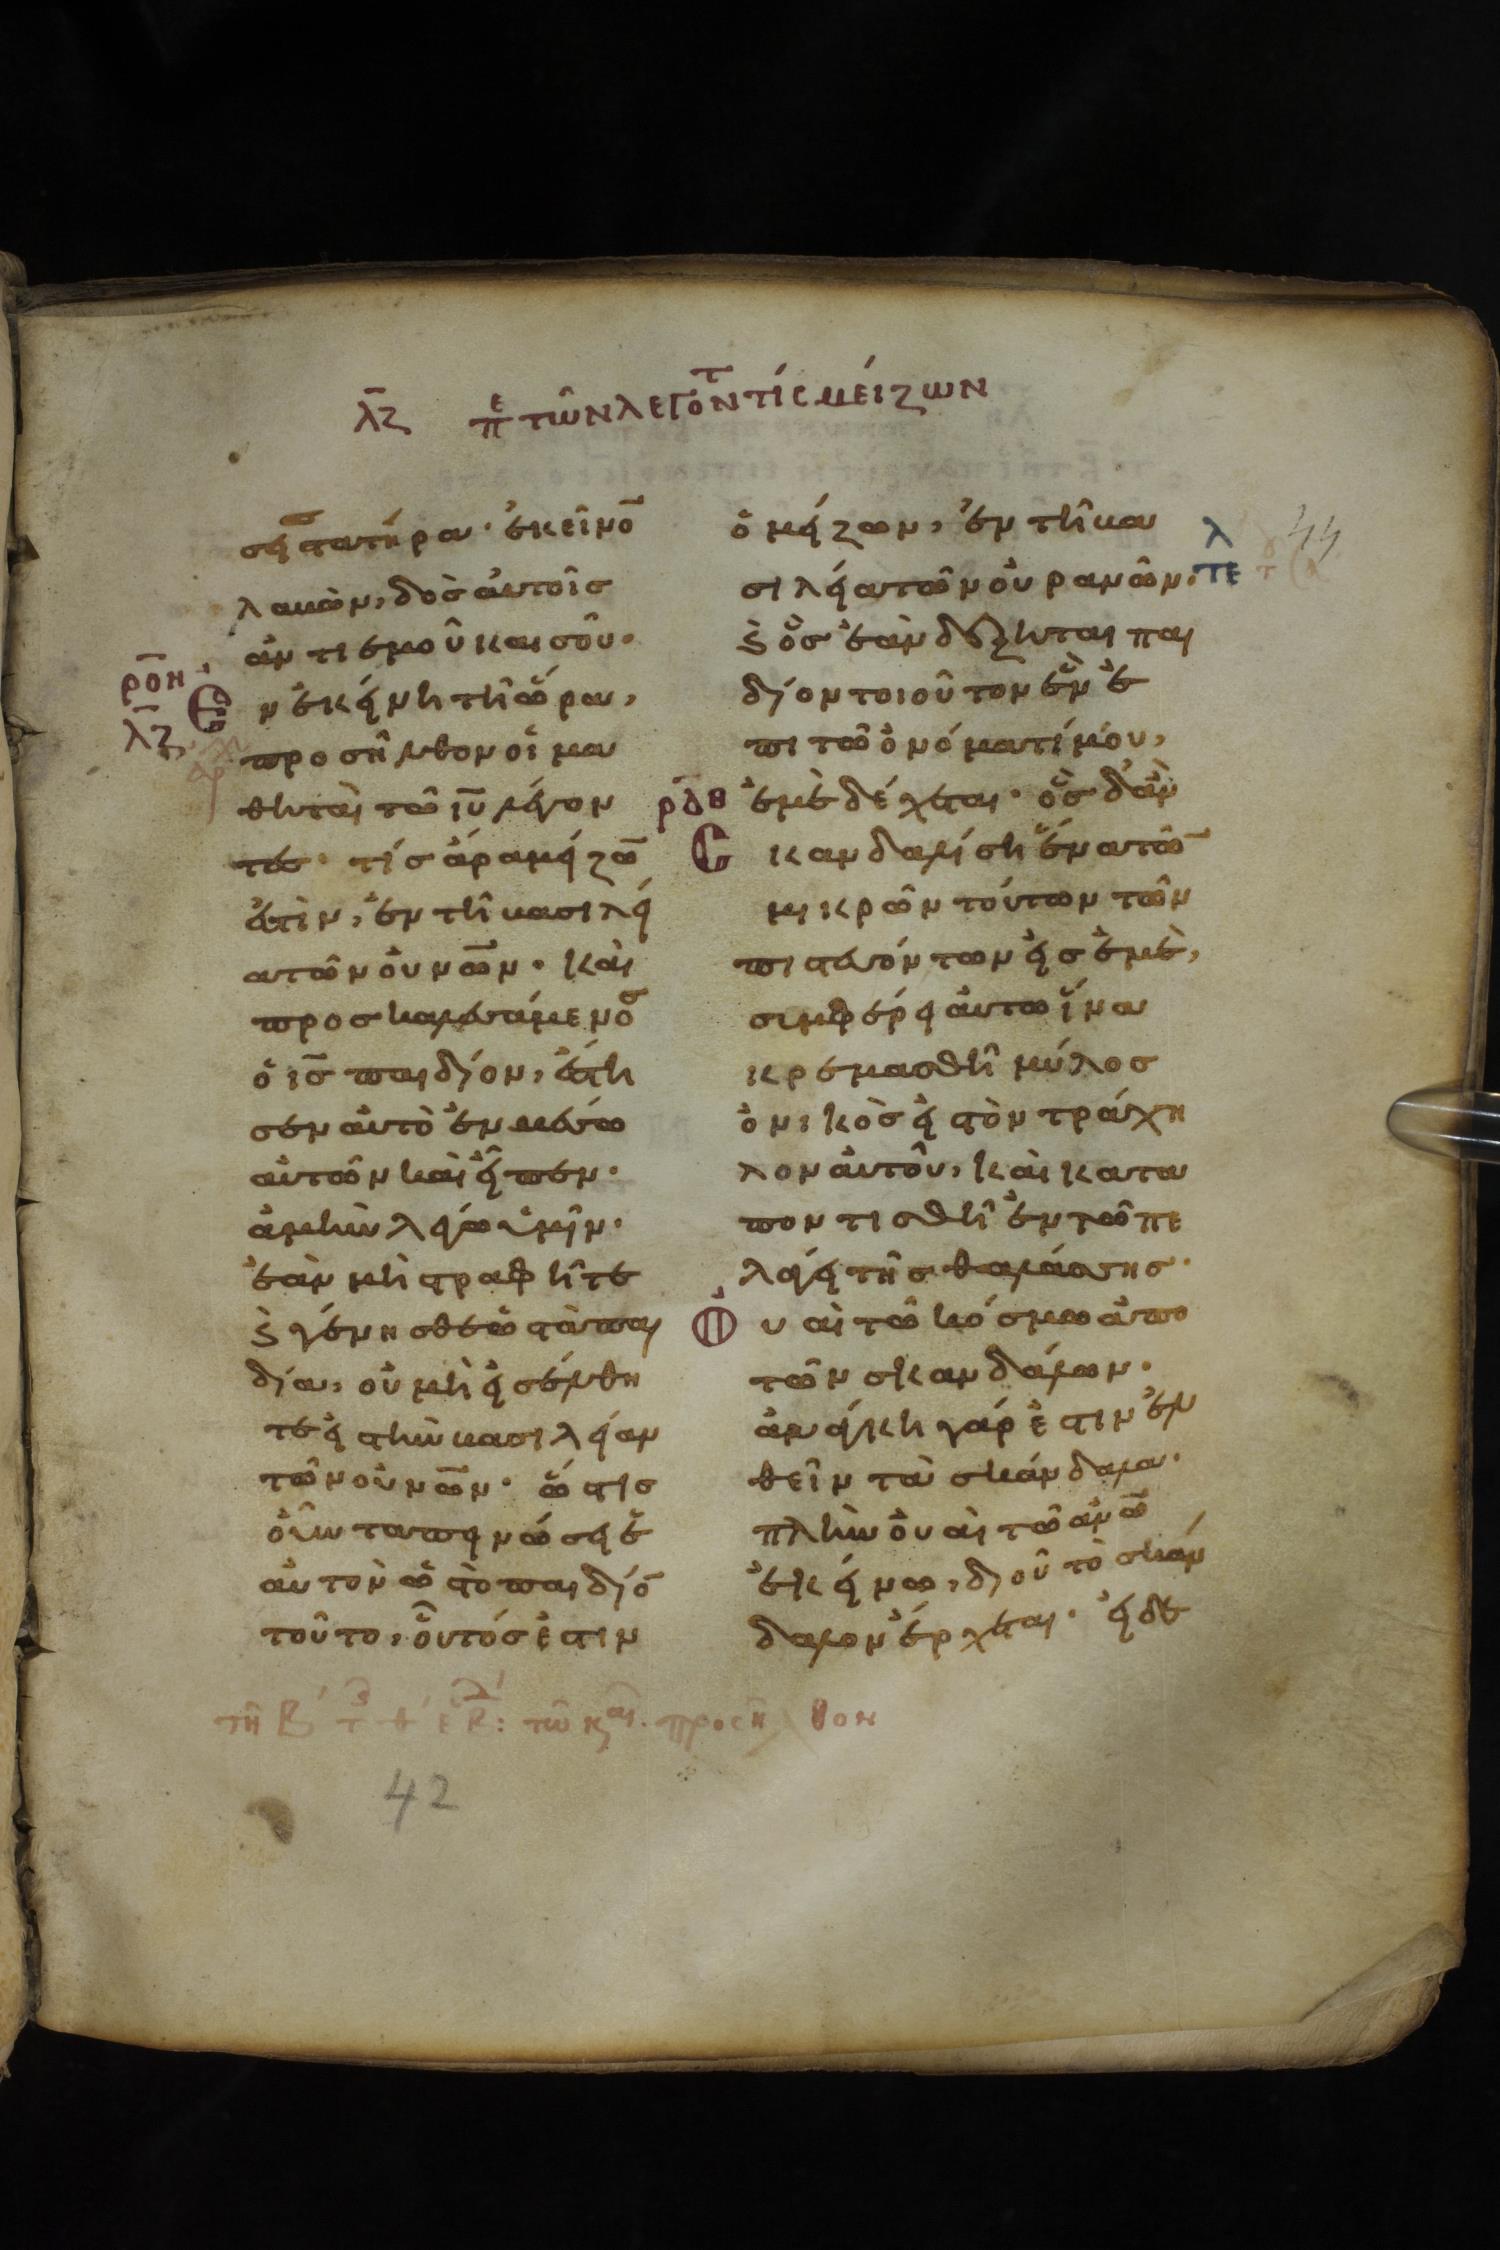 λζ πε τῶν λεγόντ τίς μείζων
σει στατῆρα· ἐκεῖνο̅
λαβὼν, δὸσ ἀυτοῖσ
ἀντι ἐμοῦ και σοῦ·
ροη
λζ
Ἐν ἐκείνη τῆ ὥρα,
προσῆλθον οἱ μα
θηταὶ τῶ ιυ λέγον
τεσ· τίσ ἄρα μείζω̅
ἐστὶν, ἐν τῆ βασιλεί
α τῶν ουνω̅ν· καὶ
προσκαλεσάμενοσ
ὁ ισ παιδίον, ἔστη
σεν ἀυτὸ ἐν μέσω
ἀυτῶν καὶ εἶπεν·
ἀμὴν λέγω ὑμῖν·
ἐὰν μὴ στραφῆτε
ϗ γένησθε ὡσ τὰ παι
δία, οὐ μὴ εἰσέλθη
τε εἰσ τὴν βασιλείαν
τῶν ουνω̅ν· ὥστισ
οὖν ταπεινώσει ἑ
αυτὸν ὡσ τὸ παιδίο̅
τοῦτο, οὗτόσ ἐστιν
ὁ μείζων, ἐν τῆ βα
σιλεία τῶν οὐρανῶν·
λ
πε
44
ϗ ὃσ ἐὰν δέξηται παι
δίον τοιοῦτον ἓν ἐ
πι τῶ ὀνόματί μου,
ἐμὲ δέχεται· ὃσ δ' ἂν
ροθ
Σκανδαλίση ἕνα τῶ̅
μικρῶν τούτων τῶν
πιστευόντων εἰσ ἐμὲ,
σιμφέρει ἀυτω ἵνα
κρεμασθῆ μύλοσ
ὀνικὸσ εἰσ τὸν τράχη
λον ἀυτοῦ, καὶ κατα
ποντισθῆ ἐν τῶ πε
λάγει τῆσ θαλάσσησ·
Ουαὶ τῶ κόσμω ἀπο
τῶν σκανδάλων·
ἀνάγκη γάρ ἐστιν ἐλ
θεῖν τὰ σκάνδαλα·
πλὴν ὀυαὶ τῶ ἀνω̅
ἐκείνω, δι οὗ τὸ σκάν
δαλον ἔρχεται· εἰ δὲ
τῶ κ προσῆλθον
42